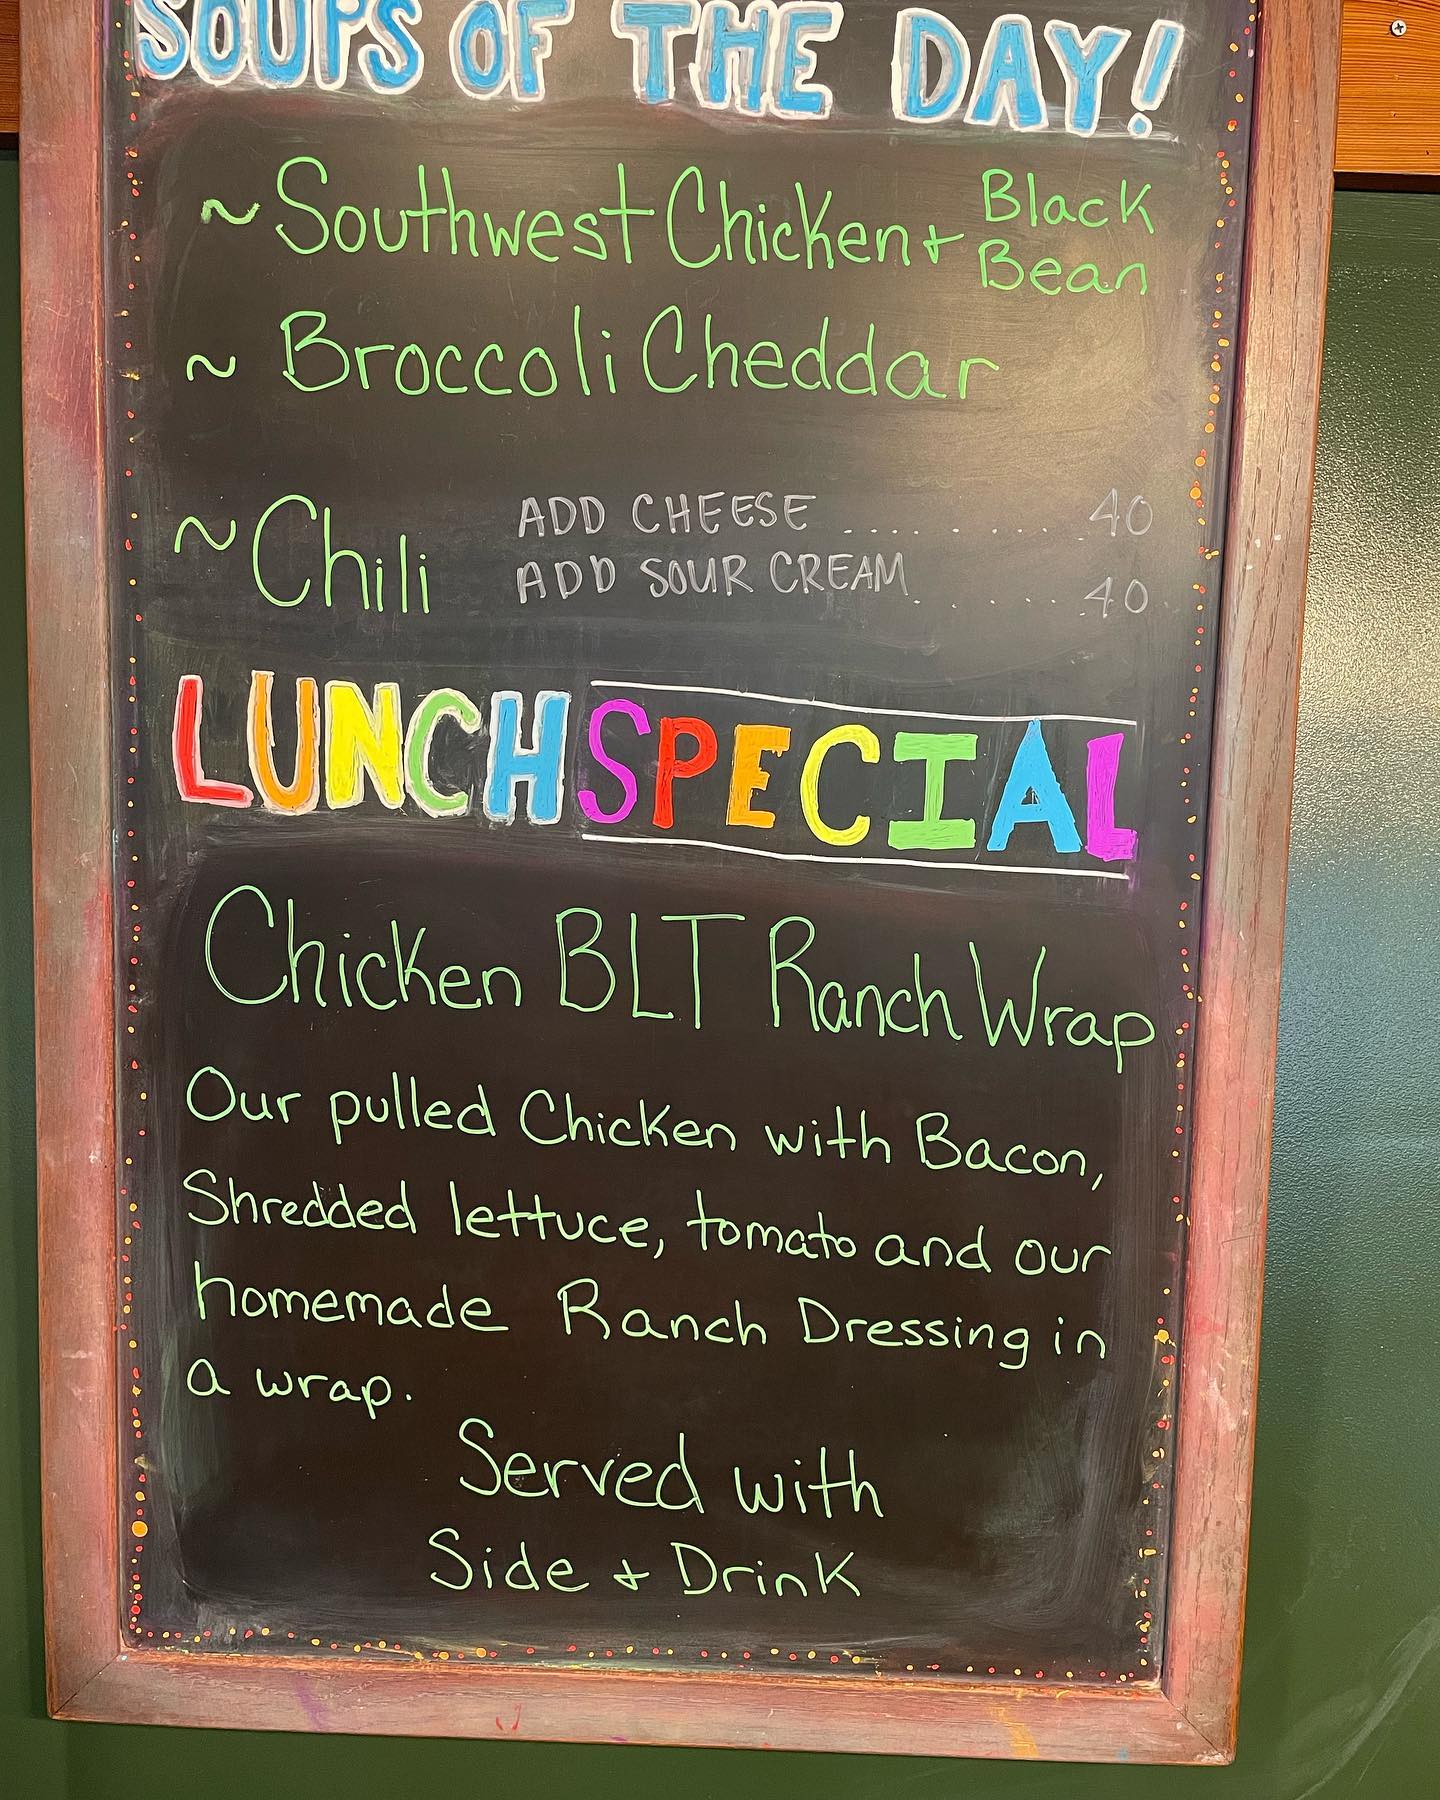 SOUPS OF THE DAY!
~ Southwest Chicken + Black Bean
~ Broccoli Cheddar
~ Chili
ADD CHEESE ........ 40
ADD SOUR CREAM ........ 40
LUNCH SPECIAL
Chicken BLT Ranch Wrap
Our pulled Chicken with Bacon,
Shredded lettuce, tomato and our
homemade Ranch Dressing in
a wrap.
Served with
Side + Drink